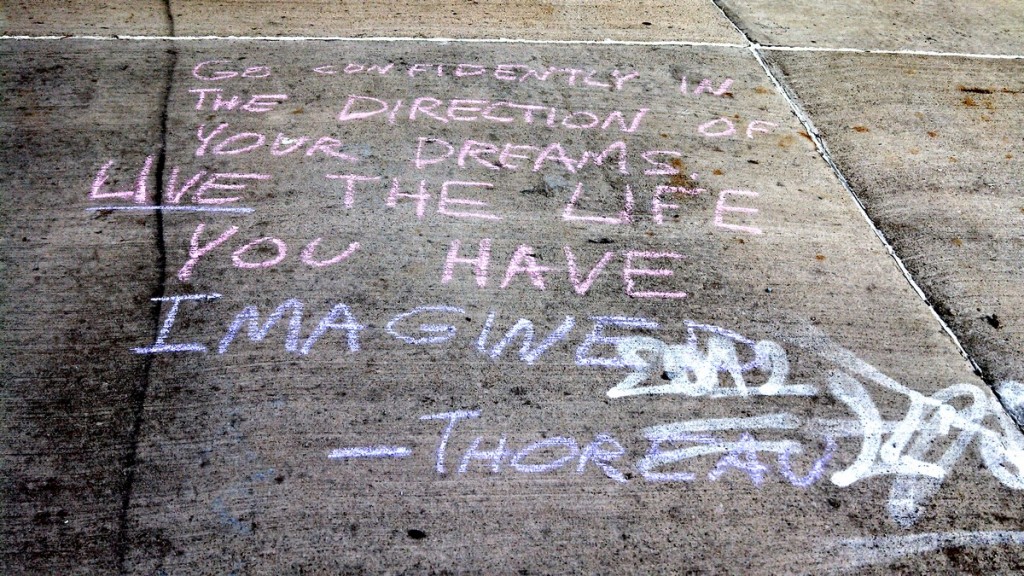 GO CONFIDENTLY IN
THE DIRECTION OF
YOUR DREAMS.
LIVE THE LIFE
YOU HAVE
IMAGINED
—THOREAU